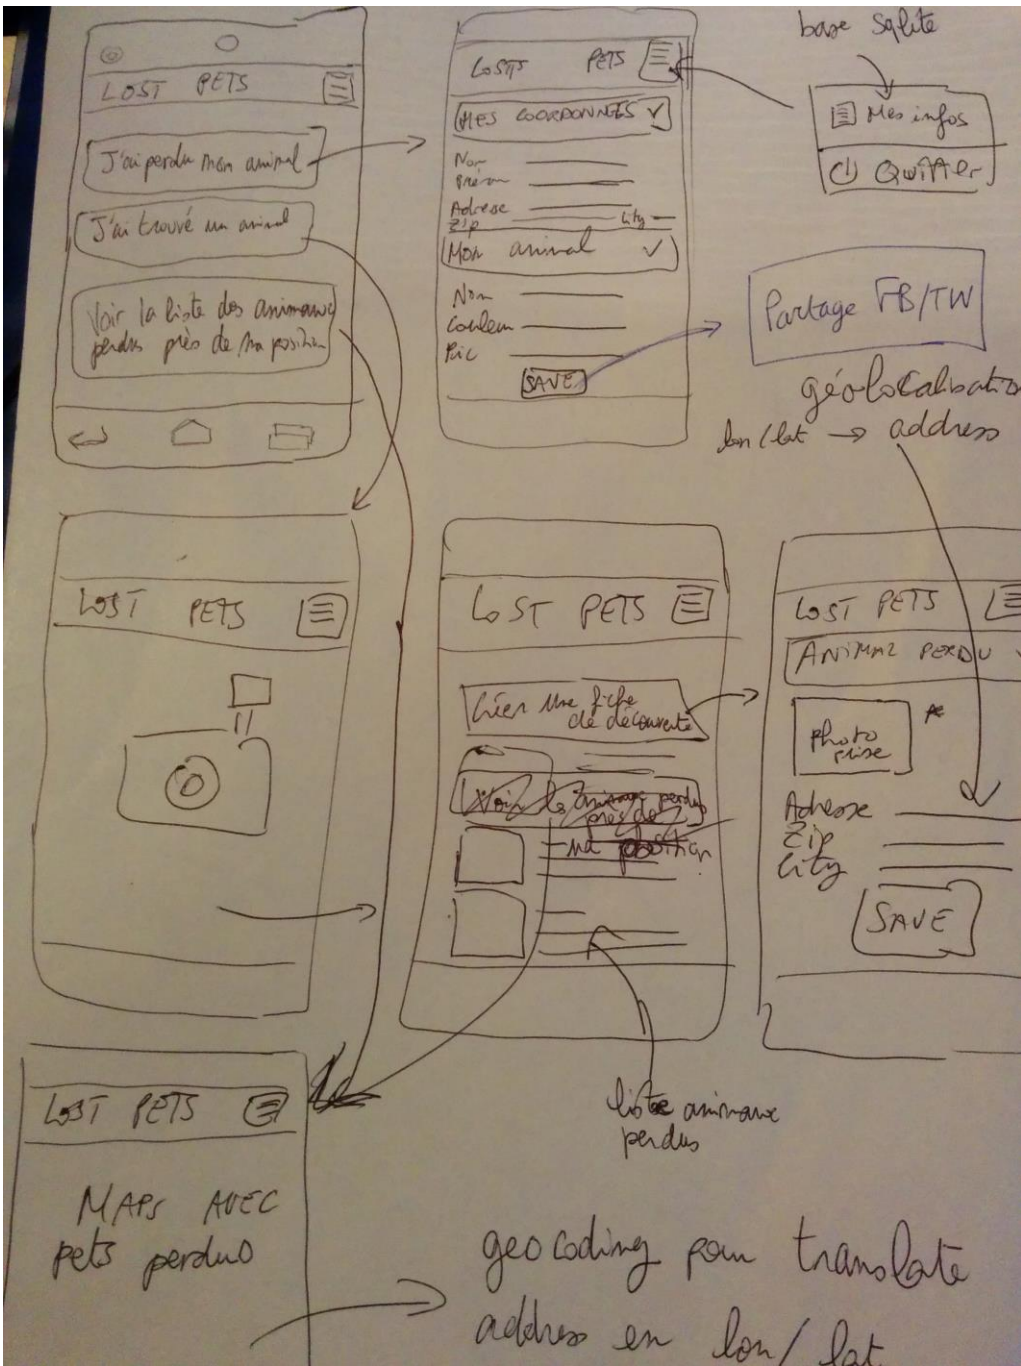 LOST PETS
J'ai perdu mon animal
J'ai trouvé un animal
Voir la liste des animaux
perdus près de ma position
LOSTS PETS
MES COORDONNEES
Nom
Prénom
Adresse
Zip City
Mon animal
Nom
Couleur
Pic
SAVE
base sqlite
Mes infos
Qwitter
Partage FB/TW
géolocalisation
lon/lat → address
LOST PETS
LOST PETS
Créer une fiche
de découverte
Voir les animaux perdus
près de
ma position
liste animaux
perdus
LOST PETS
ANIMAL PERDU
Photo
prise
Adresse
Zip
City
SAVE
LOST PETS
MAPS AVEC
pets perdus
geocoding pour translate
address en lon/lat